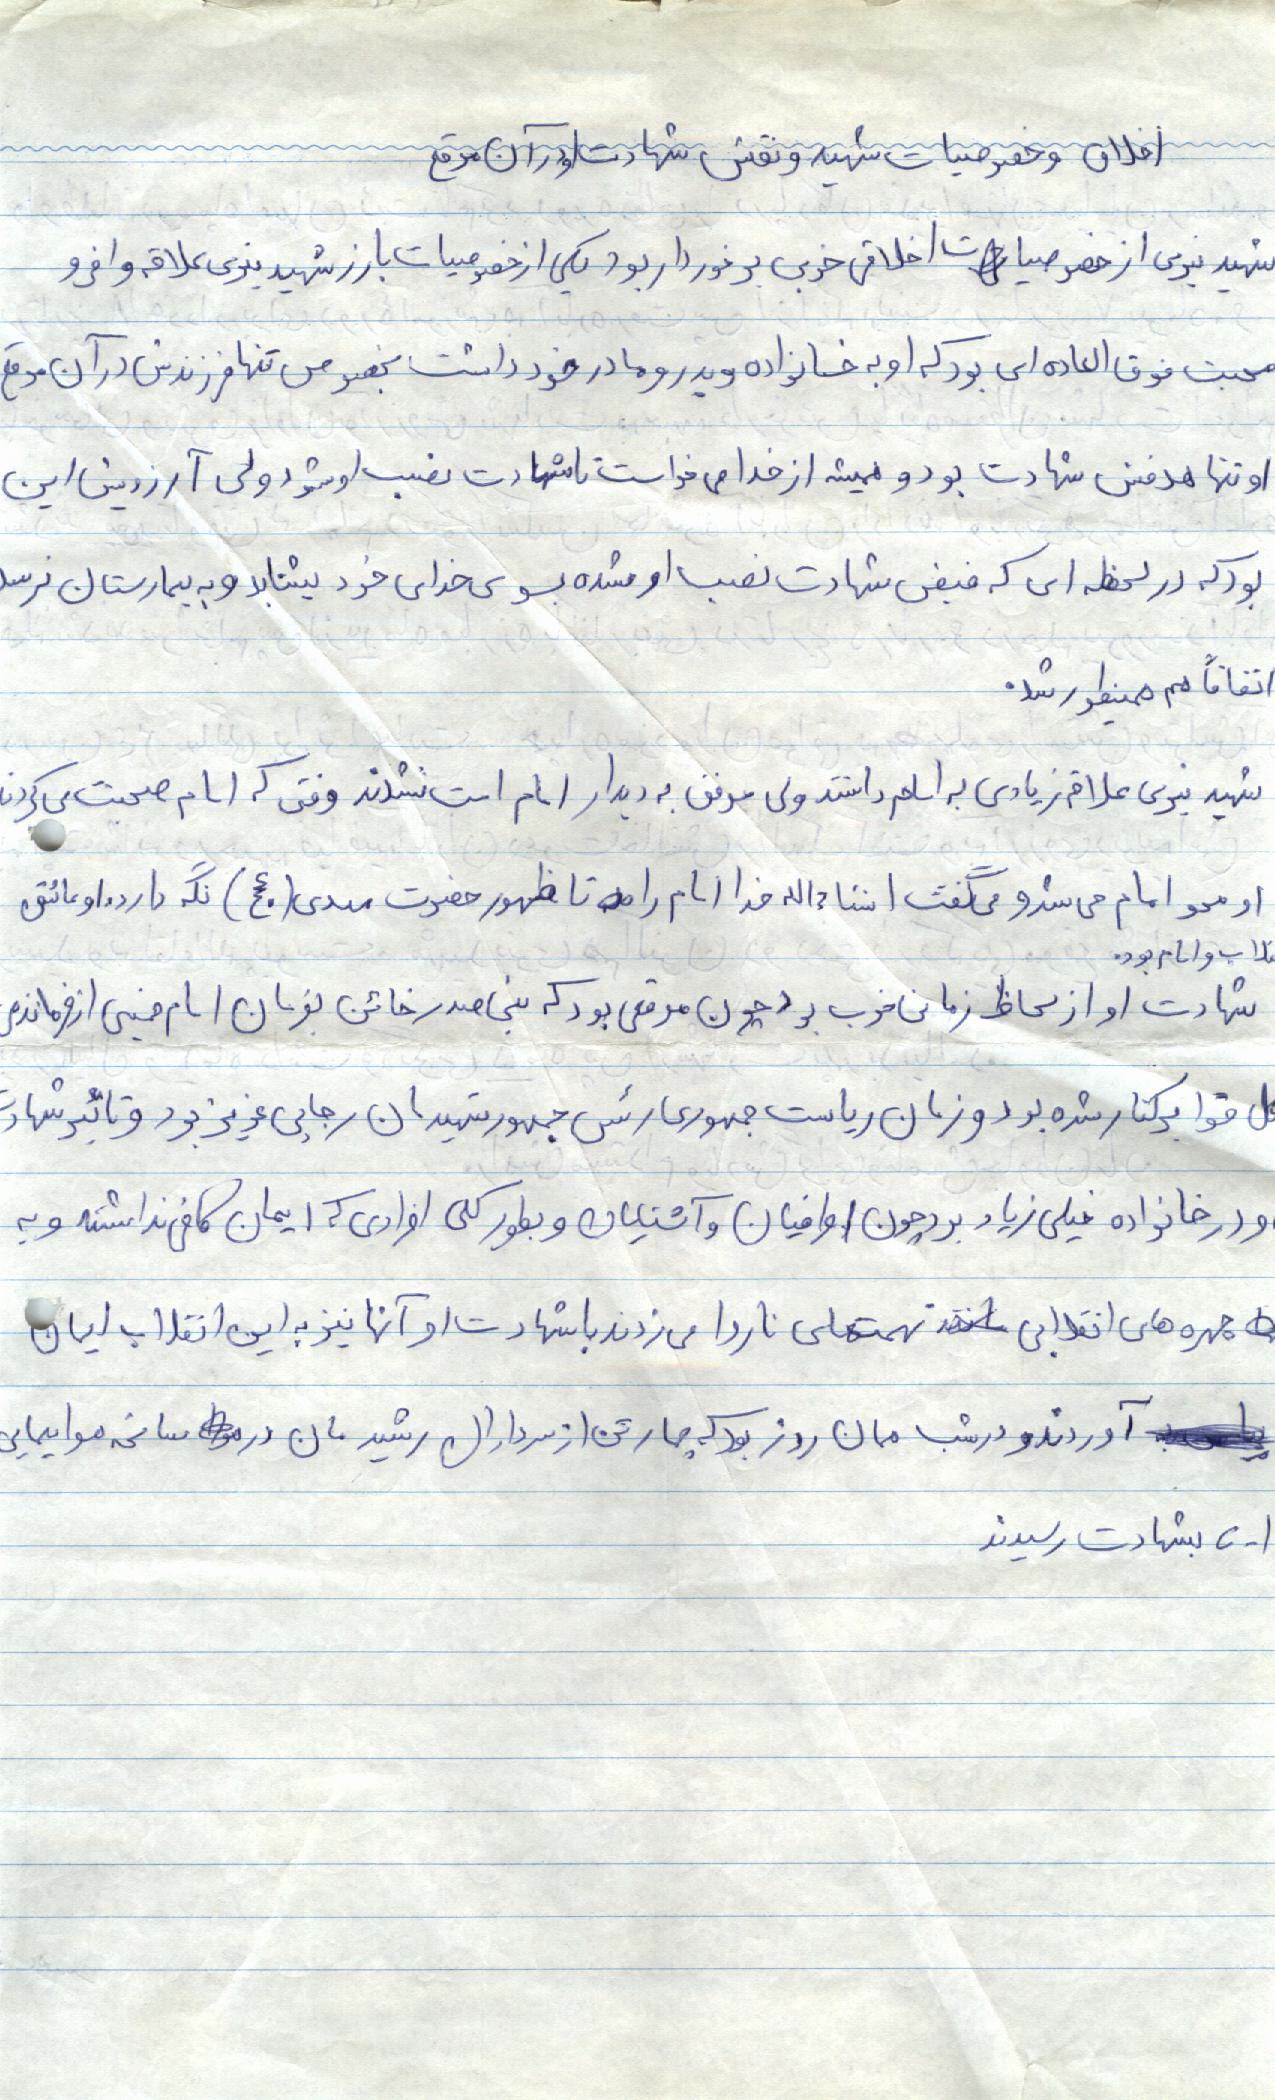 اخلاق و خصوصیات شهید و نقش شهادت او در آن موقع
شهید نبوی از خصوصیات اخلاقی خوبی برخوردار بود یکی از خصوصیات بارز شهید نبوی علاقه وافر و
محبت فوق العاده ای بود که او به خانواده و پدر و مادر خود داشت بخصوص تنها فرزندش در آن موقع
او تنها هدفش شهادت بود و همیشه از خدا می خواست تا شهادت نصیب او شود ولی آرزویش این
بود که در لحظه ای که فیض شهادت نصیب او شده بسوی خدای خود بشتابد و به بیمارستان نرسد
اتفاقاً هم همینطور شد.
شهید نبوی علاقه زیادی به امام داشتند ولی موفق به دیدار امام امت نشدند وقتی که امام صحبت می کردند
او محو امام می شد و می گفت انشاءالله خدا امام را تا ظهور حضرت مهدی (عج) نگه دارد، او عاشق
انقلاب و امام بود.
شهادت او از لحاظ زمانی خوب بود چون موقعی بود که بنی صدر خائن بفرمان امام خمینی از فرماندهی
کل قوا برکنار شده بود و زمان ریاست جمهوری رئیس جمهور شهیدمان رجایی عزیز بود و تاثیر شهادت
او در خانواده خیلی زیاد بود چون اطرافیان و آشنایان و بطور کلی افرادی که ایمان کافی نداشتند و به
چهره های انقلابی تهمتهای ناروا می زدند با شهادت او آنها نیز به این انقلاب ایمان
آوردند و در شب همان روز بود که چهار تن از سرداران رشیدمان در سانحه هواپیمایی
۱-۷ بشهادت رسیدند